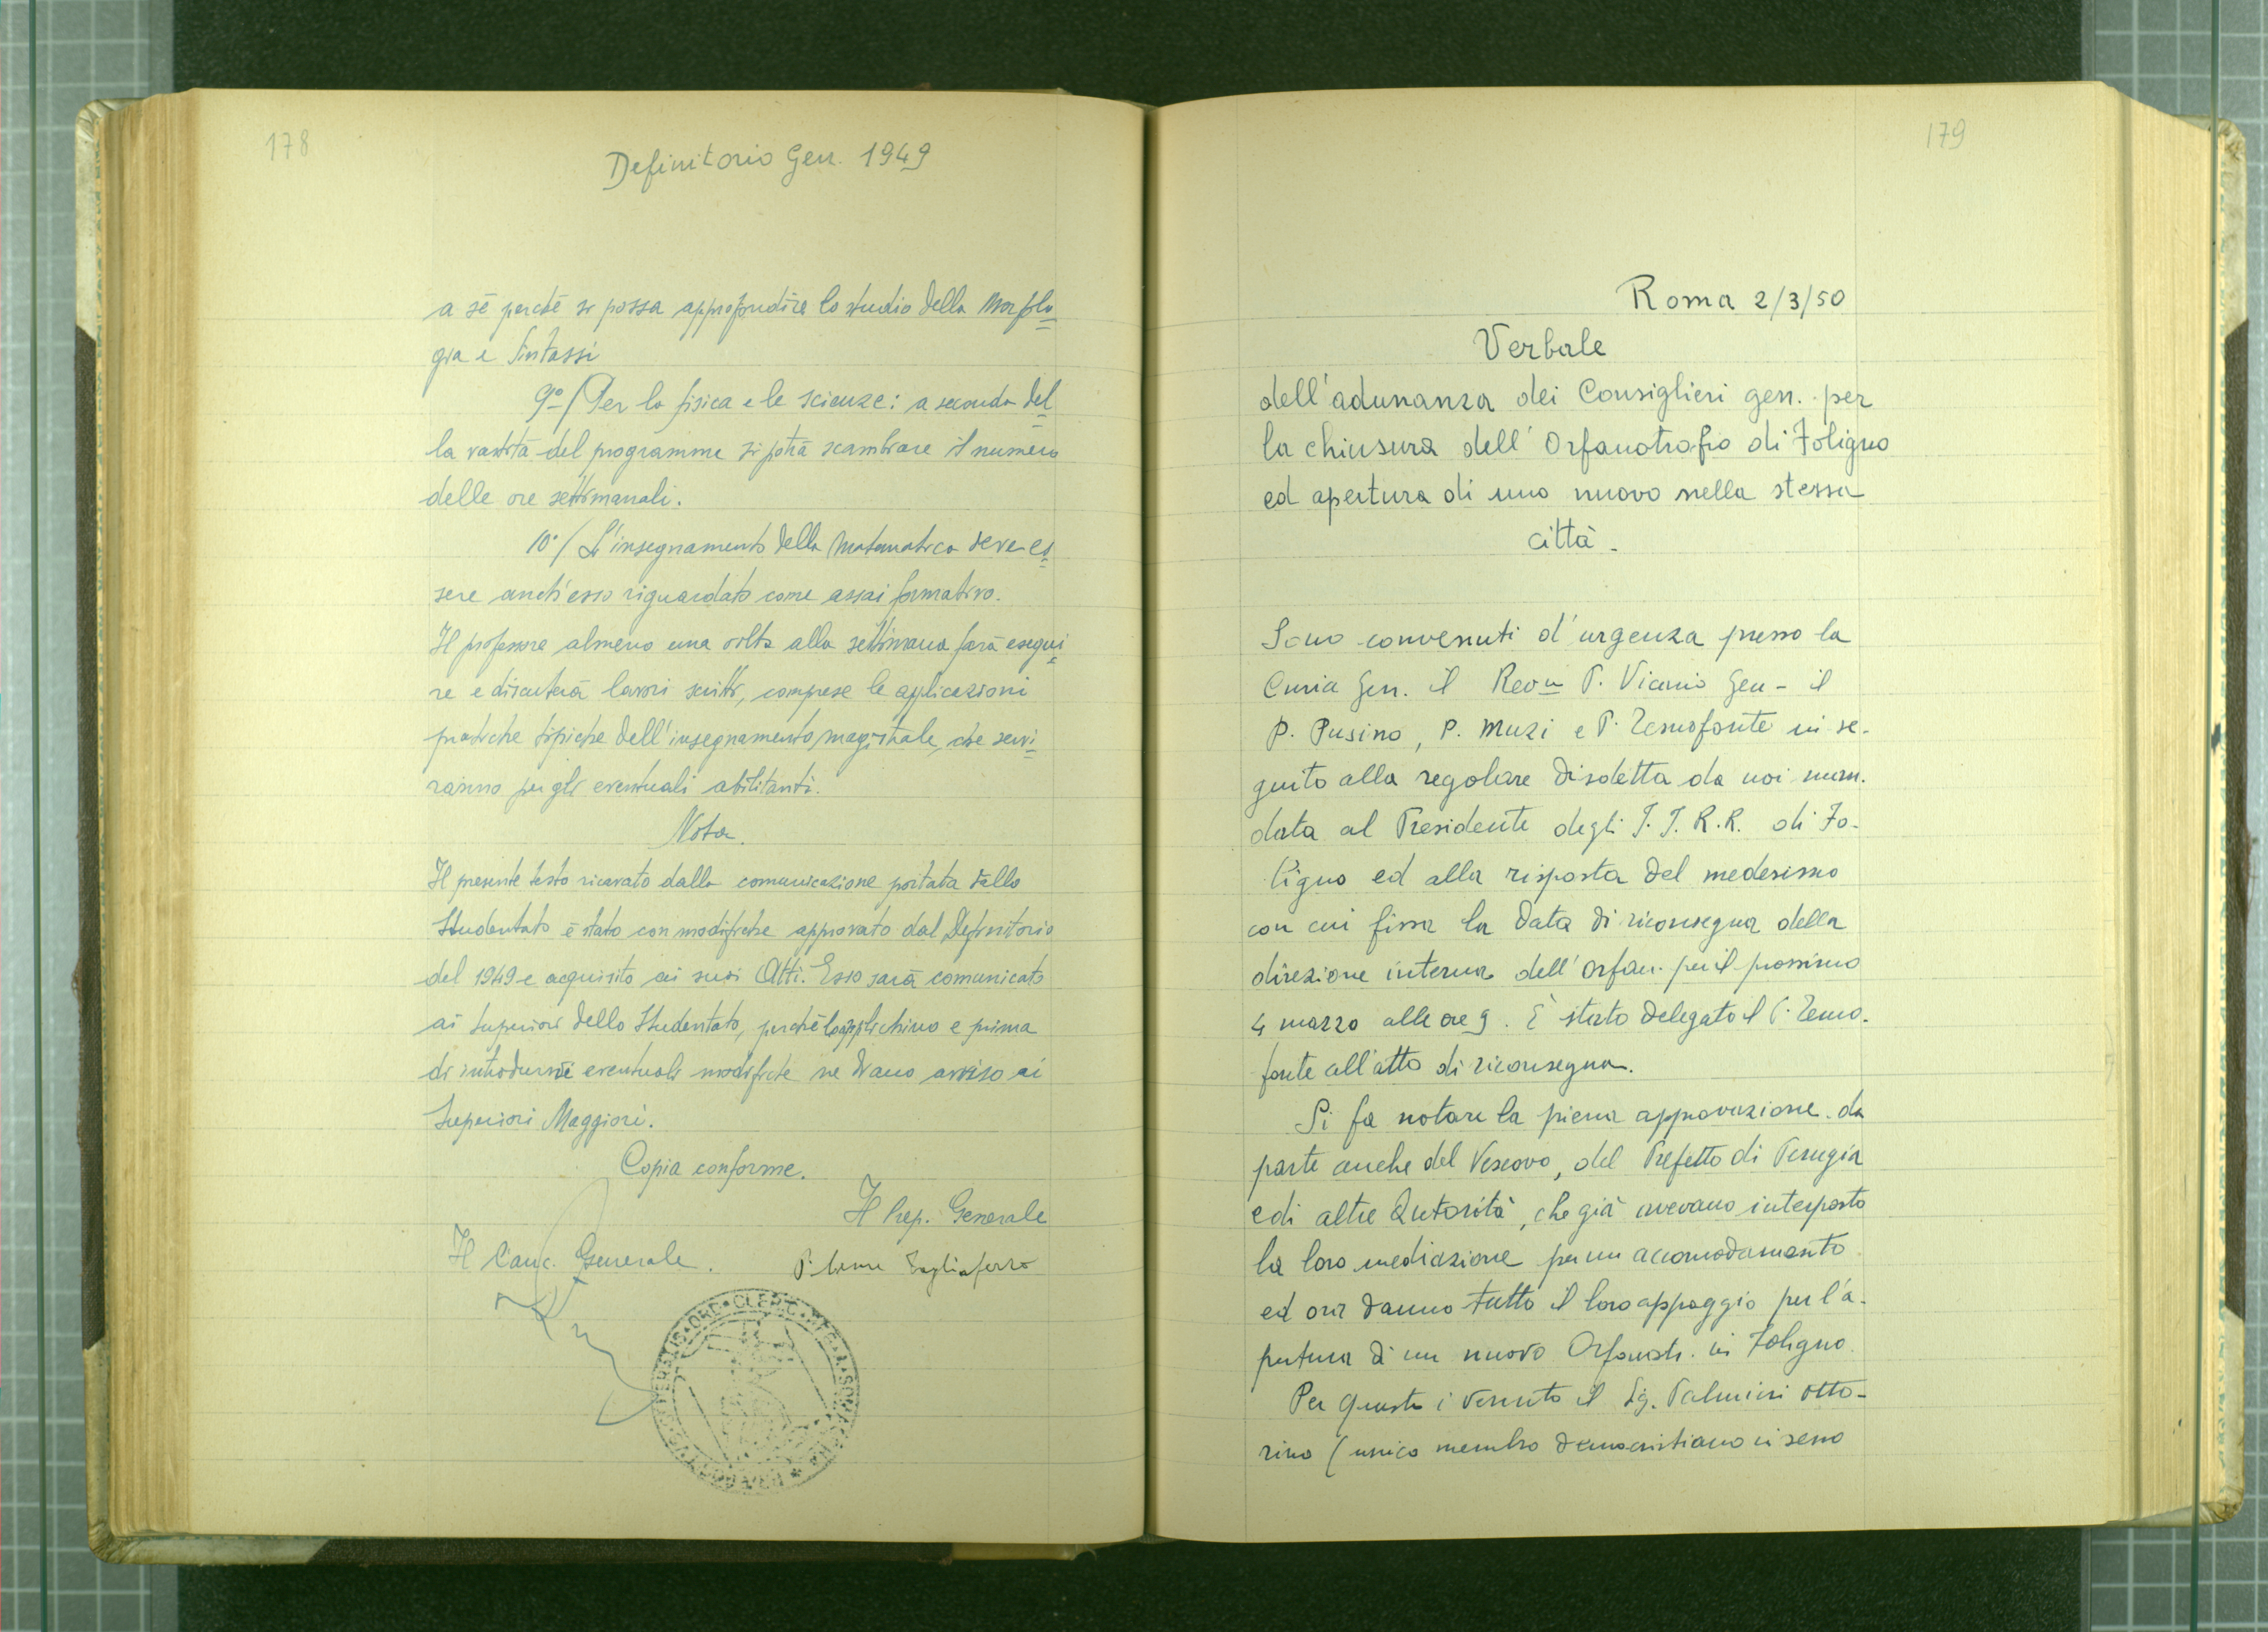 178
Definitorio Gen. 1949
a sé perché si possa approfondire lo studio della Morfolo
gia e Sintassi
9º/ Per la fisica e le scienze: a seconda del
la vastità del programma si potrà scambiare il numero
delle ore settimanali.
10º/ L'insegnamento della Matematica deve es
sere anch'esso riguardato come assai formativo.
Il professore almeno una volta alla settimana farà esegui
re e discuterà lavori scritti, comprese le applicazioni
pratiche tipiche dell'insegnamento magistrale, che servi
ranno per gli eventuali abilitanti.
Nota.
Il presente testo ricavato dalla comunicazione portata dallo
Studentato è stato con modifiche approvato dal Definitorio
del 1949 e acquisito ai suoi Atti. Esso sarà comunicato
ai Superiori dello Studentato, perché lo applichino e prima
di introdurvi eventuali modifiche ne diano avviso ai
Superiori Maggiori.
Copia conforme.
Il Prep. Generale
Il Canc. Generale.
P. Tagliaferro
ORD. CLERIC. REG. A
179
Roma 2/3/50
Verbale
dell'adunanza dei Consiglieri gen. per
la chiusura dell'Orfanotrofio di Foligno
ed apertura di uno nuovo nella stessa
città.
Sono convenuti d'urgenza presso la
Curia Gen. il Rev.m P. Vicario Gen - il
P. Pusino, P. Muzi e P. Temofonte in se-
guito alla regolare disdetta da noi man.
data al Presidente degli I. I. R.R. di Fo-
ligno ed alla risposta del medesimo
con cui fissa la data di riconsegna della
direzione interna dell'Orfan. per il prossimo
4 marzo alle ore 9. È stato delegato il P. Temo-
fonte all'atto di riconsegna.
Si fa notare la piena approvazione da
parte anche del Vescovo, del Prefetto di Perugia
e di altre Autorità, che già avevano interposto
la loro mediazione per un accomodamento
ed ora danno tutto il loro appoggio per l'a-
pertura di un nuovo Orfanotr. in Foligno.
Per questo è venuto il Sig. Palmieri Otto-
rino (unico membro democristiano in seno